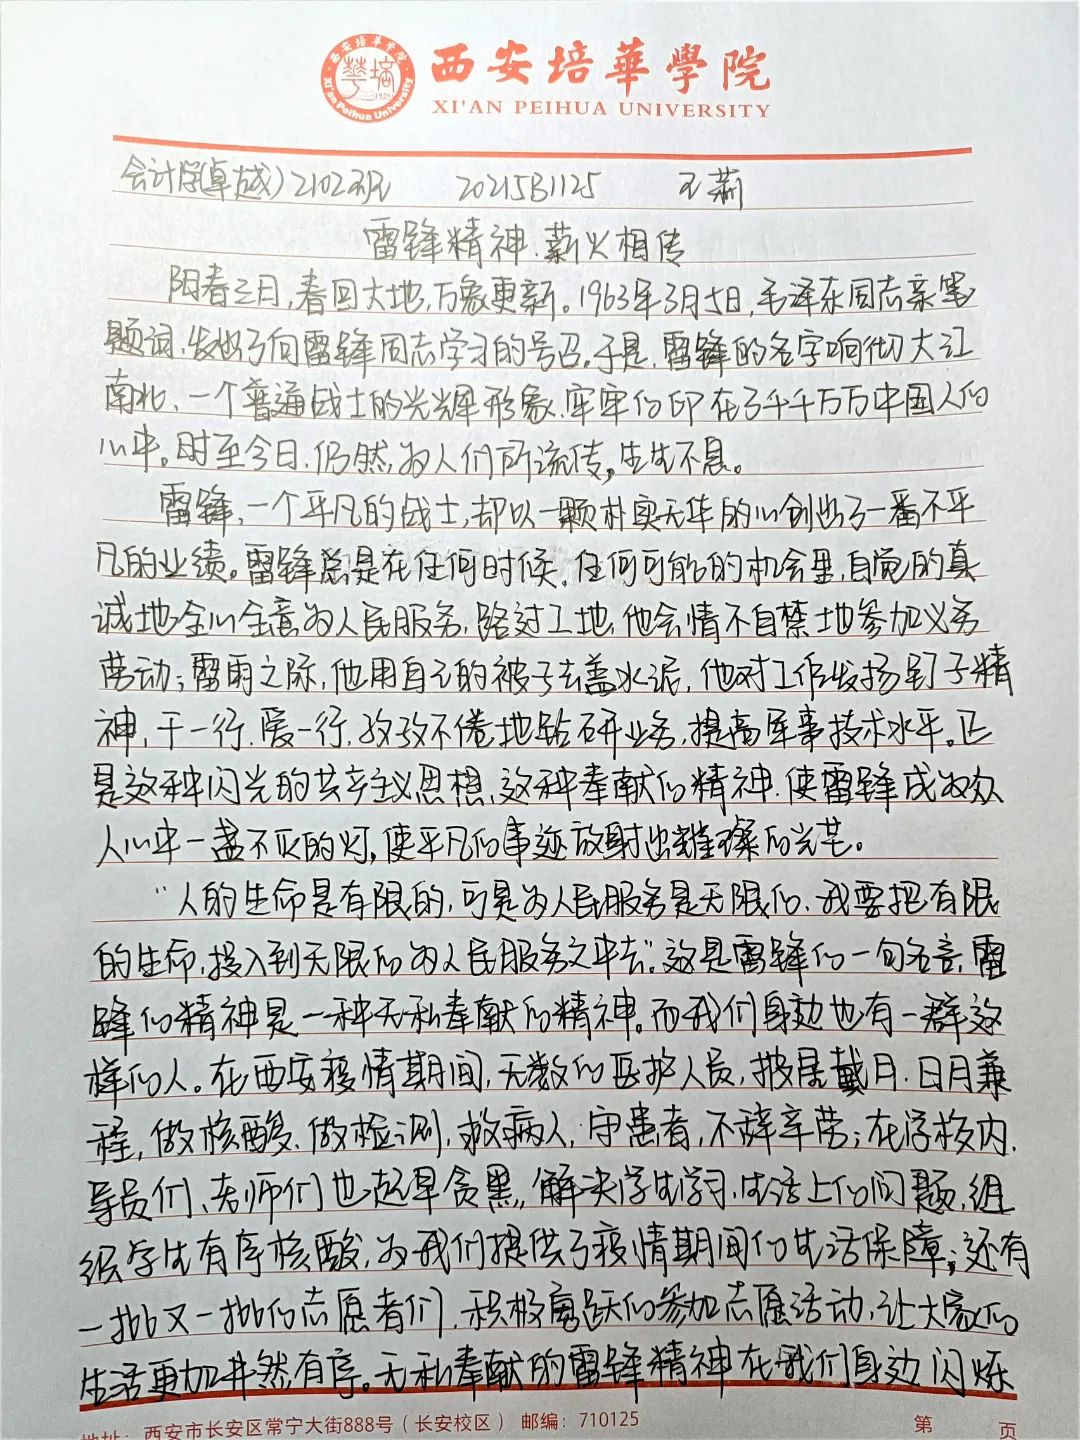 西安培華學院
XI'AN PEIHUA UNIVERSITY
会计学(卓越)2102班 20215B1125 王莉
雷锋精神.薪火相传
阳春三月,春回大地,万象更新。1963年3月5日,毛泽东同志亲笔
题词,发出了向雷锋同志学习的号召。于是,雷锋的名字响彻大江
南北,一个普通战士的光辉形象,牢牢的印在了千千万万中国人的
心中。时至今日,仍然为人们所流传,生生不息。
雷锋,一个平凡的战士,却以一颗朴实无华的心创出了一番不平
凡的业绩。雷锋总是在任何时候,任何可能的机会里,自觉的真
诚地全心全意为人民服务,路过工地,他会情不自禁地参加义务
劳动;雷雨之际,他用自己的被子去盖水泥,他对工作发扬钉子精
神,干一行,爱一行,孜孜不倦地钻研业务,提高军事技术水平。正
是这种闪光的共产主义思想,这种奉献的精神,使雷锋成为众
人心中一盏不灭的灯,使平凡的事迹放射出璀璨的光芒。
“人的生命是有限的,可是为人民服务是无限的,我要把有限
的生命,投入到无限的为人民服务之中去”。这是雷锋的一句名言,雷
锋的精神是一种无私奉献的精神。而我们身边也有一群这
样的人。在西安疫情期间,无数的医护人员,披星戴月,日月兼
程,做核酸,做检测,救病人,守患者,不辞辛劳;在学校内,
导员们、老师们也起早贪黑,解决学生学习,生活上的问题,组
织学生有序核酸,为我们提供了疫情期间的生活保障;还有
一批又一批的志愿者们,积极踊跃的参加志愿活动,让大家的
生活更加井然有序。无私奉献的雷锋精神在我们身边闪烁
地址:西安市长安区常宁大街888号(长安校区) 邮编:710125 第 页